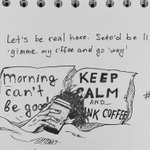 Let's be real here. Seto'd be li
'gimme my coffee and go 'way'
Morning
can't
be good
KEEP
CALM
AND
NK COFFEE
#